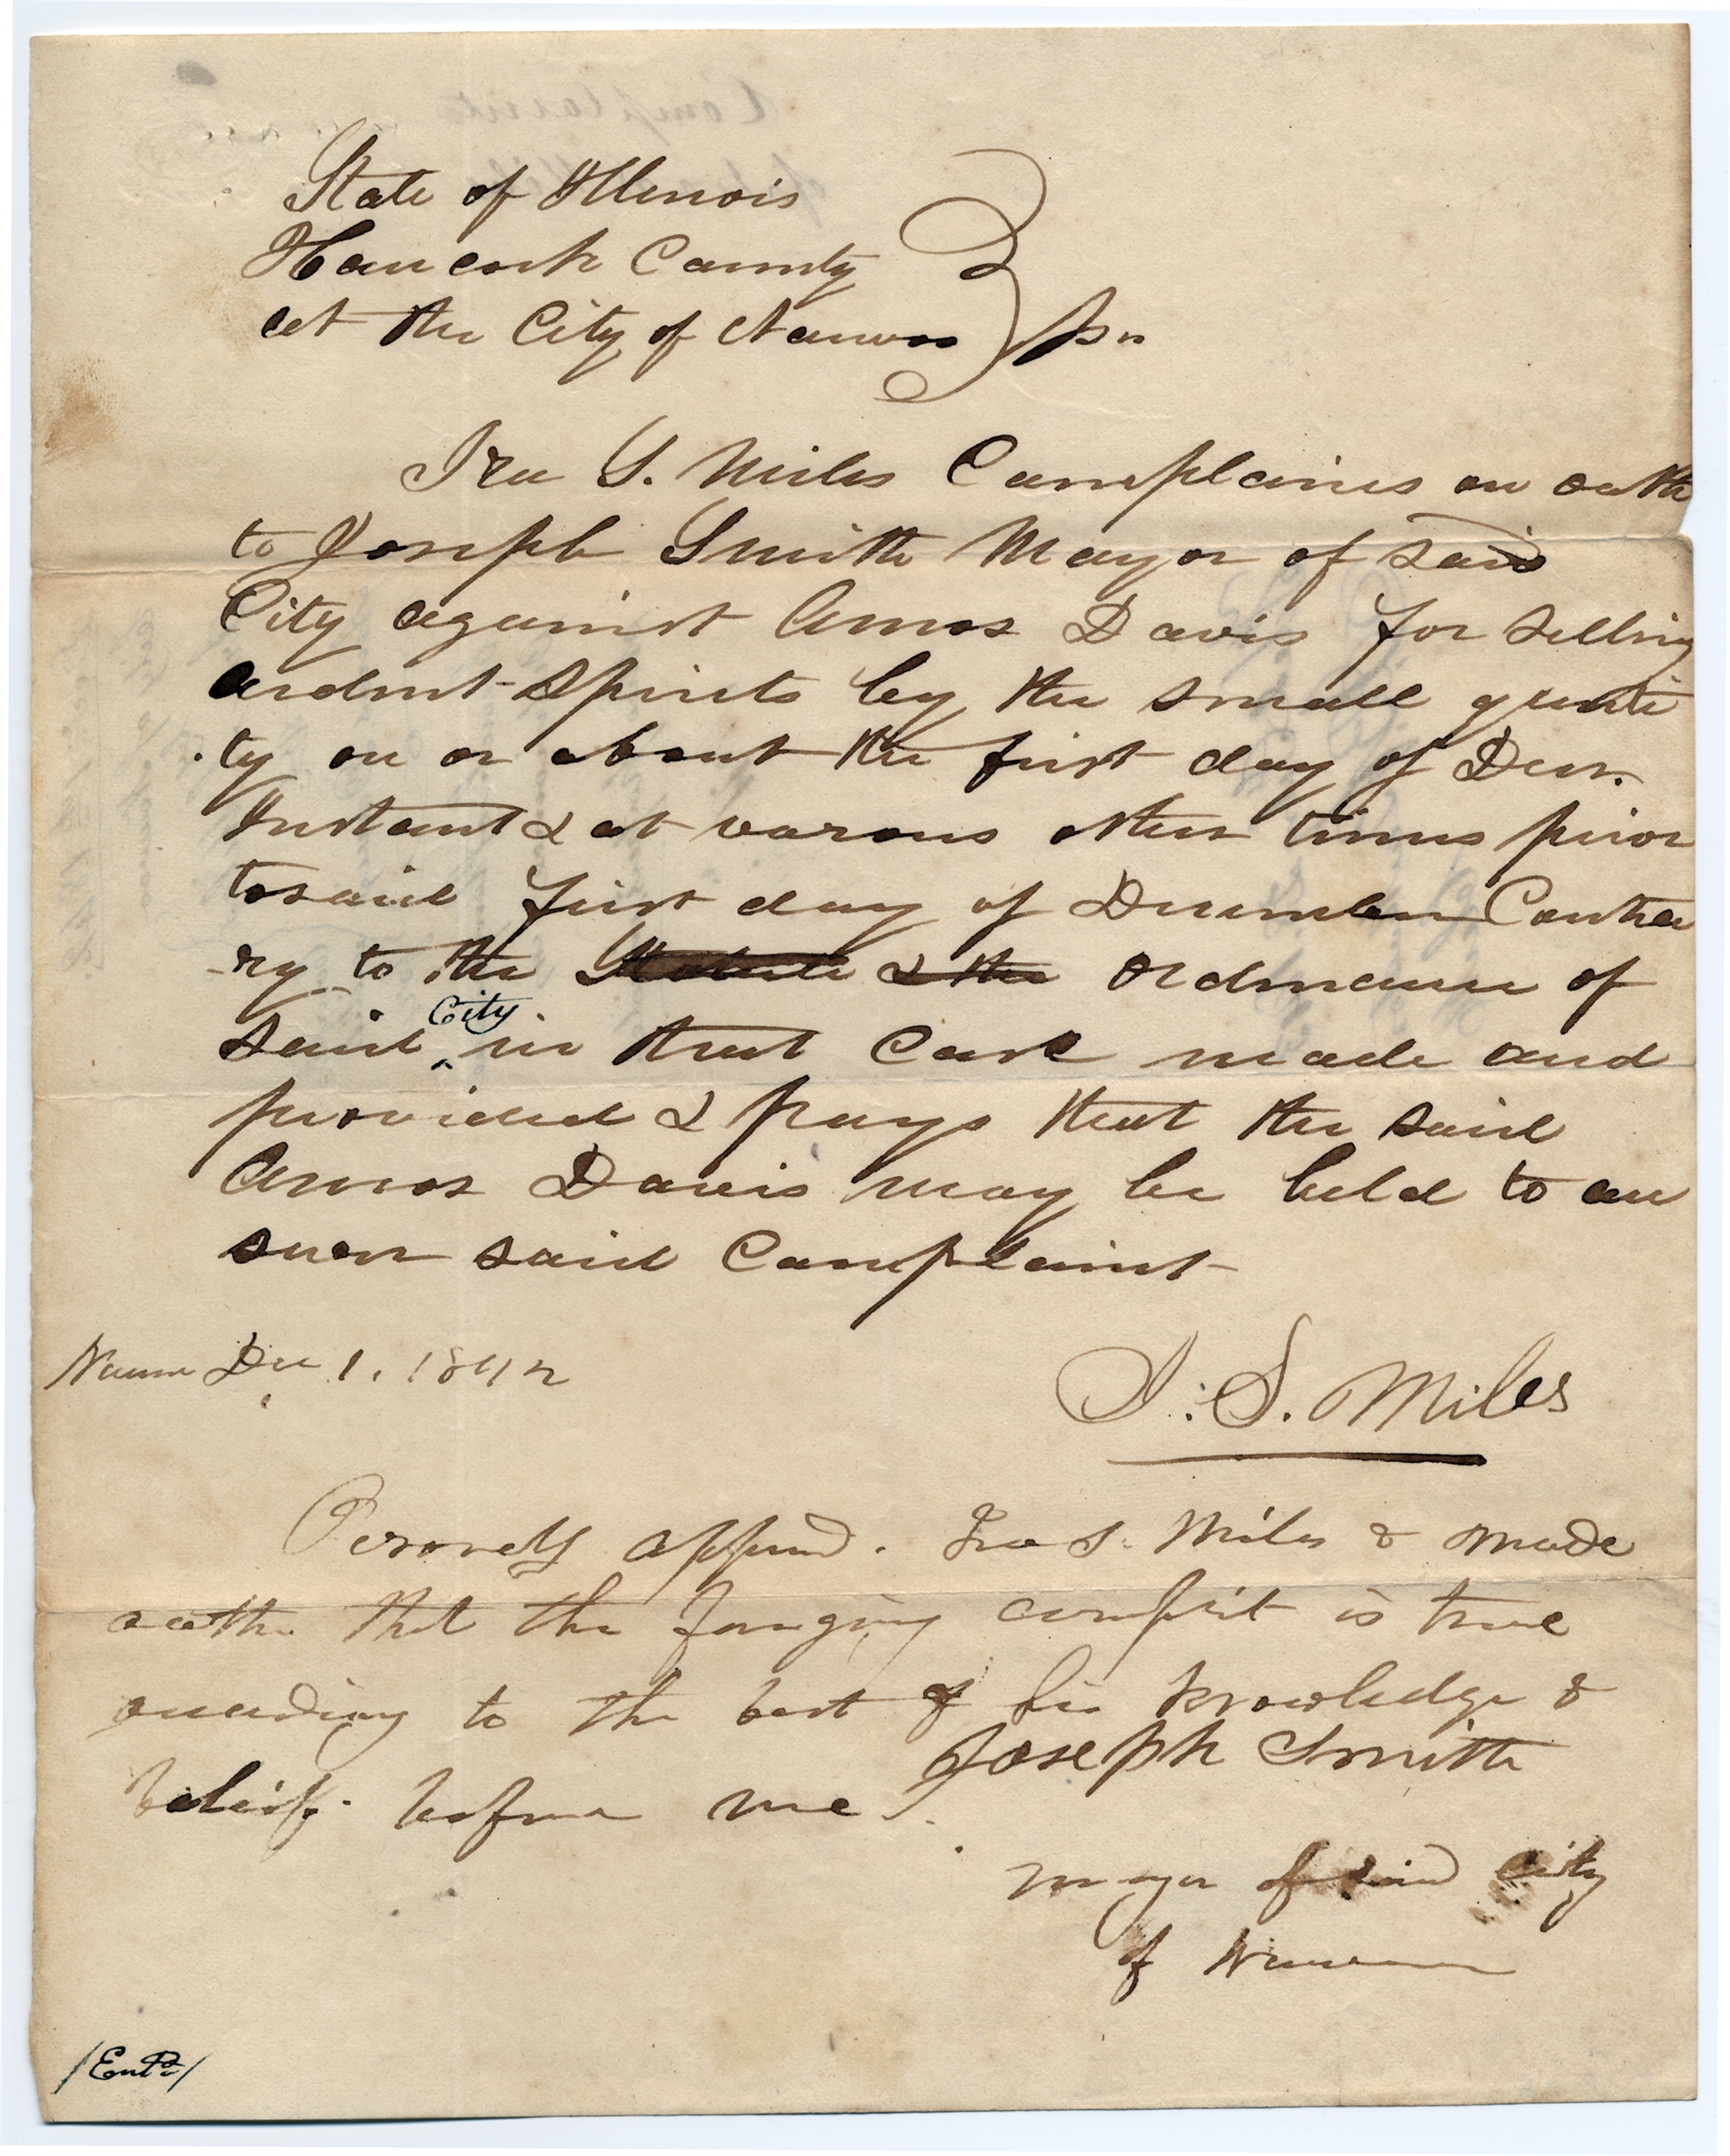 State of Illinois
Hancock County
at the City of Nauvoo } ss
Ira S. Miles Complains on oath
to Joseph Smith Mayor of said
City against Amos Davis for selling
ardent Spirits by the small quanti
-ty on or about the first day of Decr.
Instant & at varous other times prior
to said first day of December Contra
-ry to the Statute & the Ordinance of
said City in that Case made and
provided & prays that the said
Amos Davis may be held to an
swer said Complaint
Nauvoo Dec 1, 1842
I. S. Miles
Personally appeared. Ira S. Miles & made
oath that the foregoing complaint is true
according to the best of his knowledge &
belief. before me
Joseph Smith
mayor of said City
of Nauvoo
/Entd/